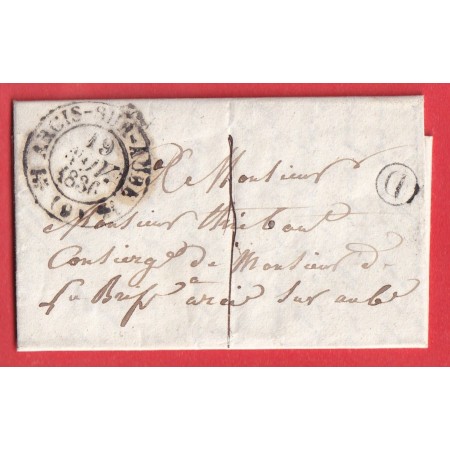 ARCIS-SUR-AUBE
19
1836
(9)
A Monsieur
Monsieur Thibaut
Consierge de Monsieur de
La Briffe a arcis sur aube
1
D